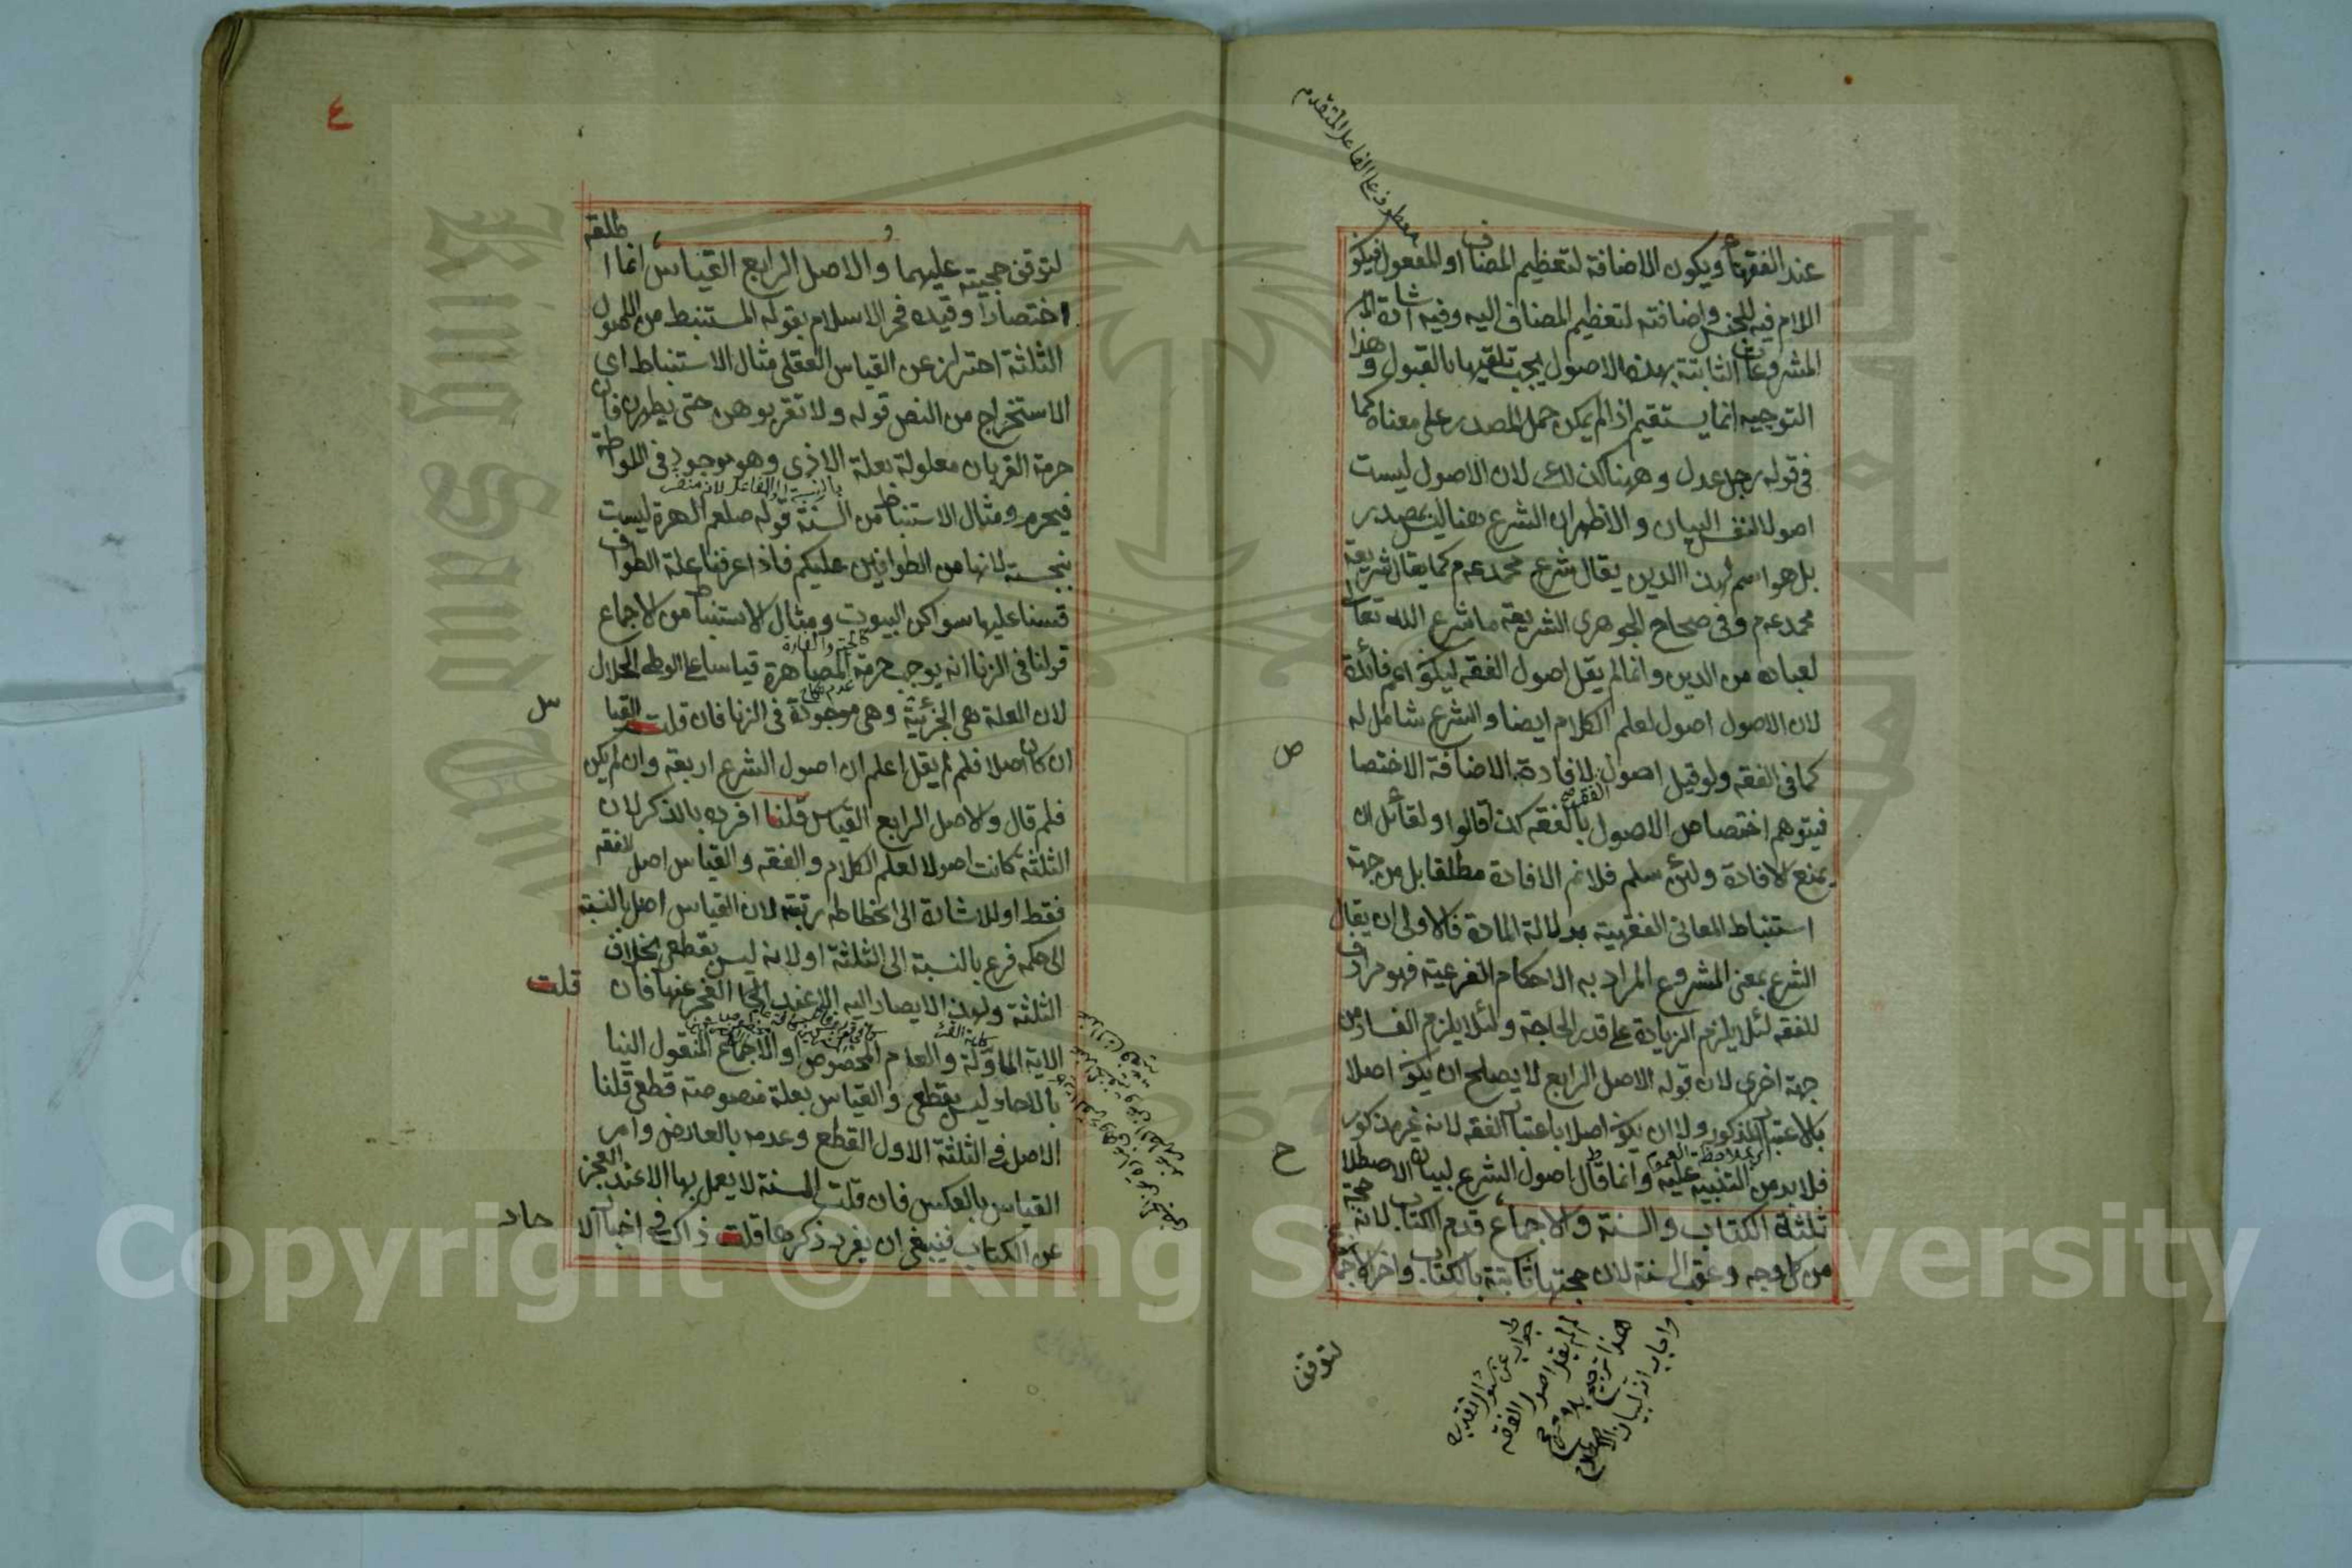 عند الفقهاء ويكون الاضافة لتعظيم المضاف او للمفعول فيكو
اللام فيه للجنس واضافته لتعظيم المضاف اليه وفيه اشارة الى
المشروعات الثابتة بهذه الاصول يجب تلقيها بالقبول وهذا
التوجيه انما يستقيم اذا لم يمكن حمل المصدر على معناه كما
فى قوله رجل عدل وههنا كذلك لان الاصول ليست
اصولا لنفس البيان والاظهر ان الشرع هنا ليس بمصدر
بل هو اسم لهذا الدين يقال شرع محمد عم كما يقال شريعة
محمد عم وفى صحاح الجوهرى الشريعة ما شرع الله تعا
لعباده من الدين وانما لم يقل اصول الفقه ليكو اعم فائدة
لان الاصول اصول لعلم الكلام ايضا والشرع شامل له
كما فى الفقه ولو قيل اصول الفقه لافادة الاضافة الاختصا
ص
فيتوهم اختصاص الاصول بالفقه كذا قالوا ولقائل ان
يمنع الافادة ولئن سلم فلانم الافادة مطلقا بل من جهة
استنباط المعانى الفقهية بدلالة المادة فالاولى ان يقال
الشرع بمعنى المشروع المراد به الاحكام الفرعية فهو مرادف
للفقه لئلا يلزم الزيادة على قدر الحاجة ولئلا يلزم الفساد من
جهة اخرى لان قوله الاصل الرابع لا يصلح ان يكو اصلا
بالاعتبار المذكور ولا ان يكو اصلا باعتبار الفقه لانه غير مذكور
فلا بد من التنبيه عليه وانما قال اصول الشرع لبيان الاصطلا
ح
ثلثة الكتاب والسنة والاجماع قدم الكتاب لانه حجة
من كل وجه وعقب السنة لان حجتها ثابتة بالكتاب واخر الاجماع
معطوف على الفاعل المتقدم
جواب عن سؤال تقديره
لم لم يقل اصول الفقه
هذا ترجيح بلا مرجح
واجاب انه لبيان الاصطلاح
لتوقف
٤
لتوقف حجيته عليهما والاصل الرابع القياس انما اطلقه
اختصارا وقيده فخر الاسلام بقوله المستنبط من الاصول
الثلثة احترازا عن القياس العقلى مثال الاستنباط اى
الاستخراج من النص قوله ولا تقربوهن حتى يطهرن فان
حرمة القربان معلولة بعلة الاذى وهو موجود فى اللواطة
فيحرم ومثال الاستنباط من السنة قوله صلعم الهرة ليست
بنجسة لانها من الطوافين عليكم فاذا عرفنا علة الطواف
قسنا عليها سواكن البيوت ومثال الاستنباط من الاجماع
كالحية والفارة
قولنا فى الزنا انه يوجب حرمة المصاهرة قياسا على الوطء الحلال
لان العلة هى الجزئية وهى موجودة فى الزنا فان قلت القيا
س
ان كان اصلا فلم لم يقل اعلم ان اصول الشرع اربعة وان لم يكن
فلم قال والاصل الرابع القياس قلنا افرده بالذكر لان
الثلثة كانت اصولا لعلم الكلام والفقه والقياس اصل للفقه
فقط او للاشارة الى انحطاط رتبته لان القياس اصل بالنسبة
الى حكمه فرع بالنسبة الى الثلثة او لانه ليس بقطعى بخلاف
الثلثة ولهذا لا يصار اليه الا عند العجز عنها فان
قلت
الاية المأولة والعام المخصوص او الاجماع المنقول الينا
بالاحاد ليس بقطعى والقياس بعلة منصوصة قطعى قلنا
الاصل فى الثلثة الاول القطع وعدمه بالعارض وامر
القياس بالعكس فان قلت السنة لا يعمل بها الا عند العجز
عن الكتاب فينبغى ان يفرد ذكرها قلت ذاك فى اخبار الا
حاد
Copyright © King Saud University